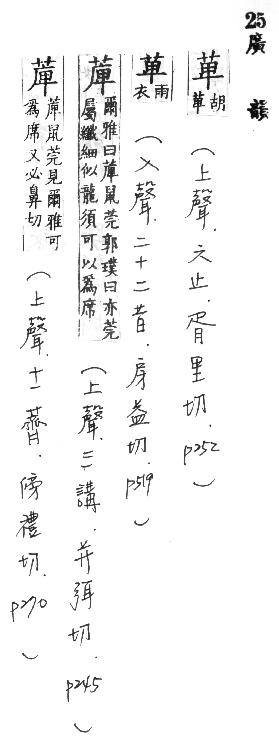 25廣韻
萆 胡草(上聲.六止.胥里切.p252)
萆 雨衣(入聲.二十二昔.房益切.p519)
萆 爾雅曰萆鼠莞郭璞曰亦莞屬纖細似龍須可以為席(上聲.三講.并弭切.p245)
萆 萆鼠莞見爾雅可為席又必鼻切(上聲.十一薺.傍禮切.p270)